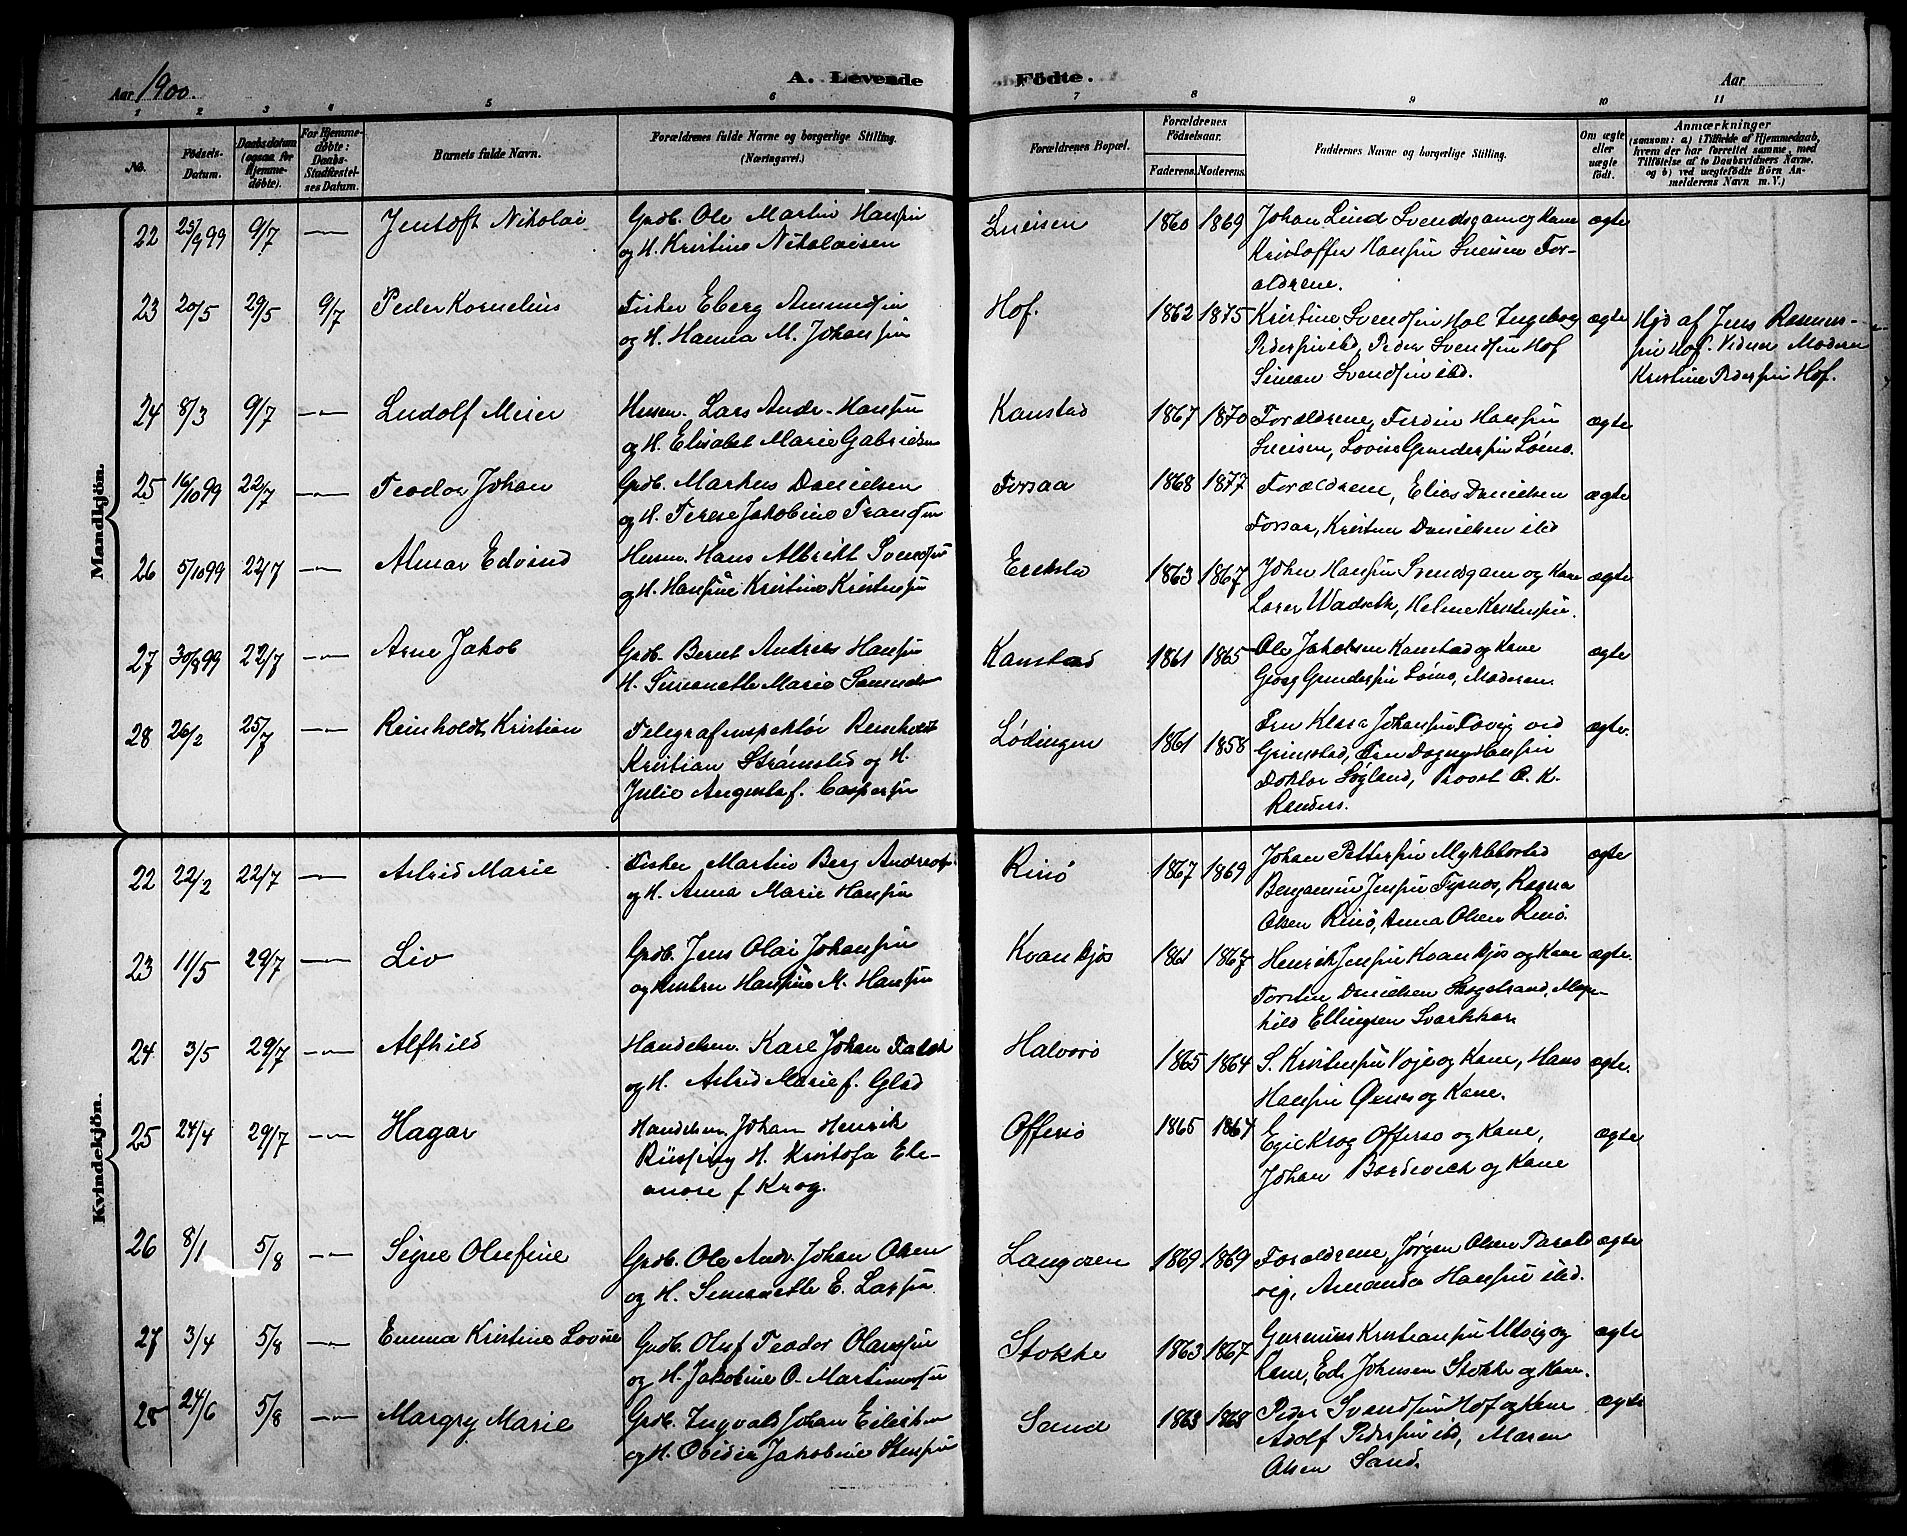 Aar 1900. A. Levende Födte. Aar
1 2 3 4 5 6 7 8 9 10 11
No. Födsels-Datum. Daabsdatum (ogsaa for Hjemme-døbte). For Hjemme-døbte: Daabs-Stadfæstelses Datum. Barnets fulde Navn. Forældrenes fulde Navne og borgerlige Stilling. (Næringsvei.) Forældrenes Bopæl. Forældrenes Födselsaar. Faderens. Moderens. Faddernes Navne og borgerlige Stilling. Om ægte eller uægte født. Anmærkninger (saasom: a) i Tilfælde af Hjemmedaab, hvem der har forrettet samme, med Tilföielse af to Daabsvidners Navne. og b) ved uægtefödte Börn Anmelderens Navn m. V.)
Mandkjön.
22 25/9 99 9/7 —"— Jentoft Nikolai Grdb. Ole Martin Hansen 1860 1869 Johan Lind Svendsgam og Kone ægte
og H. Kristine Nikolaisen Kristoffer Hansen Sneisen For-
ældrene.
23 20/5 29/5 9/7 Peder Kornelius Fisker Eberg Amundsen Hof. 1862 1875 Kristine Svendsen Hol Ingeborg ægte Hjd af Jens Rasmus-
og H. Hanna M. Johansen Pedersen ibd, Peder Svendsen Hof sen Hof. Vidner Moderen
Simon Svendsen ibd. Kristine Pedersen Hof.
24 8/3 9/7 —"— Ludolf Meier Husm. Lars Andr. Hansen Kanstad 1867 1870 Forældrene, Ferdin Hansen ægte
og H. Elisabet Marie Gabrielsen Sneisen, Lovise Gundersen
25 16/10 99 22/7 —"— Teodor Johan Grdb. Markus Danielsen Forsaa 1868 1877 Forældrene, Elias Danielsen ægte
og H. Terese Jakobine Fransen Forsaa, Kristine Danielsen ibd
26 5/10 99 22/7 —"— Almar Edvind Husm. Hans Albrikt Svendsen Erikstad 1863 1867 Johan Hansen Svendsgam og Kone ægte
og H. Hansine Kristine Kristensen Wadseth, Helene Kristensen.
27 30/8 99 22/7 —"— Arne Jakob Grdb. Bernt Andreas Hansen Kanstad 1861 1865 Ole Jakobsen Kanstad og Kone ægte
H. Simonette Marie Georg Gundersen Moderen.
28 26/2 25/7 —"— Reinholdt Kristian Telegrafinspektør Reinholdt Lødingen 1861 1858 Fru Klara Johansen ved ægte.
Kristian Strømsted og H. Grimstad, Fru Dagny Hansen
Julie Augusta f. Caspersen Doktor Søgland, Provst O. K.
Randers.
Kvindekjön.
22 22/2 22/7 —"— Astrid Marie Fisker Martin Berg Andreas Rinø 1867 1869 Johan Pettersen Myklebostad ægte
og H. Anna Marie Hansen Benjamin Jensen Ragna
Olsen Rinø, Anna Olsen Rinø.
23 11/5 29/7 —"— Liv Grdb. Jens Olai Johansen Kvankjøs 1861 1867 Henrik Jensen Kvankjøs og Kone ægte.
og Hustru Hansine M. Hansen Torsten Danielsen Skogstrand, Mag-
hild Ellingsen
24 3/5 29/7 —"— Alfhild Handelsm. Karl Johan Falch Halvorø 1865 1864 S. Kristensen Voje og Kone, Hans ægte.
og H. Astrid Marie f. Glad Hansen og Kone.
25 24/4 29/7 —"— Hagar Handelsm Johan Henrik Offersø 1865 1864 Krog Offersø og Kone, ægte
H. Kristofa Ele- Johan Bordevich og Kone
onore f Krog.
26 8/1 5/8 —"— Signe Olufine Grdb. Ole Andr. Johan Olsen Langosen 1869 1869 Forældrene, Jørgen Olsen ægte
og H. Simonette E. Larsen vig, Amanda Hansen ibd.
27 3/4 5/8 —"— Emma Kristine Lovise Grdb. Oluf Teodor Olausen Stokke 1863 1867 Kristiansen Utvig og ægte
og H. Jakobine O. Martinussen Kone, Ed. Johnsen Stokke og Kone.
28 24/6 5/8 —"— Margry Marie Grdb. Ingvald Johan Eilertsen Sand 1863 1868 Peder Svendsen Hof og Kone ægte
og H. Jakobine Stensen Adolf Pedersen ibd, Maren
Olsen Sand.